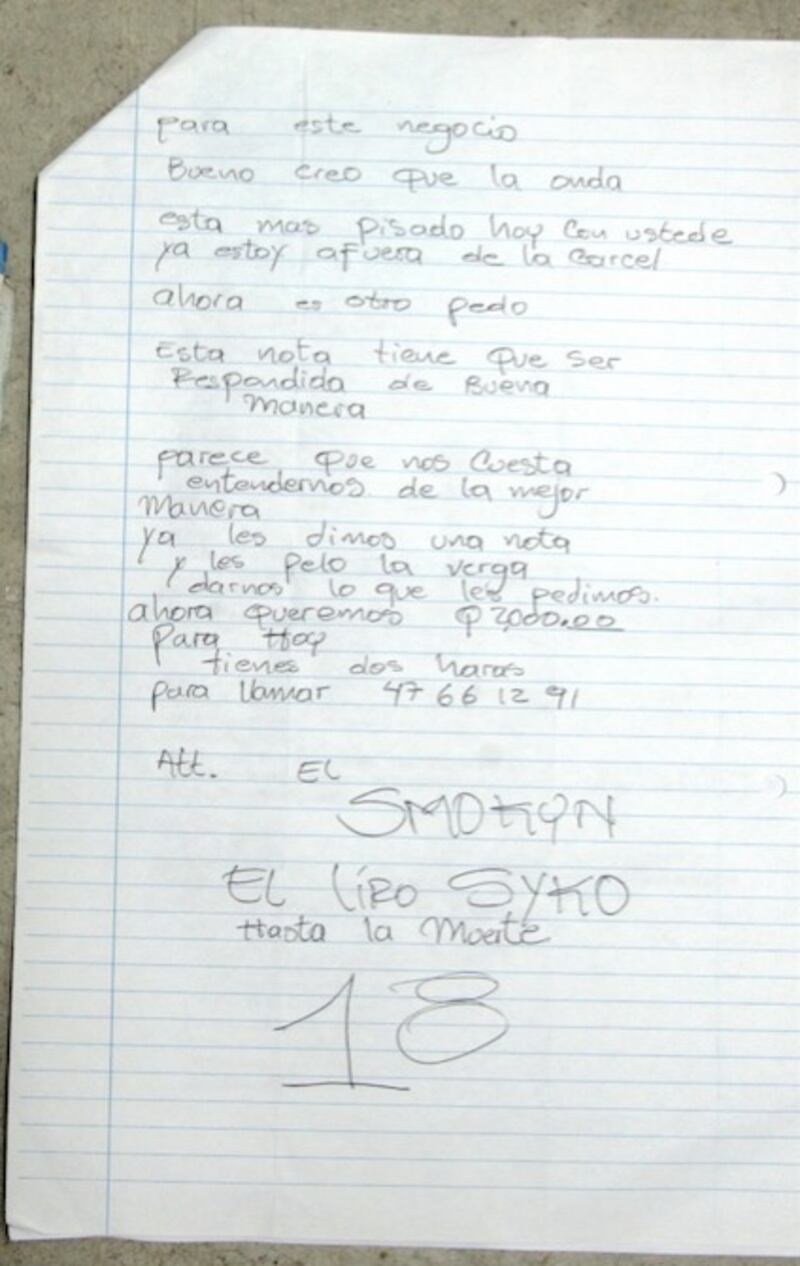 para este negocio
Bueno creo que la onda
esta mas pisado hoy con ustede
ya estoy afuera de la carcel
ahora es otro pedo
Esta nota tiene que ser
Respondida de Buena
manera
parece que nos cuesta
entendernos de la mejor
manera
ya les dimos una nota
y les pelo la verga
darnos lo que les pedimos.
ahora queremos Q 2,000.00
Para Hoy
tienes dos horas
para llamar 47 66 12 91
Att. EL
SMOKYN
EL LiRO SYKO
Hasta la Moerte
18